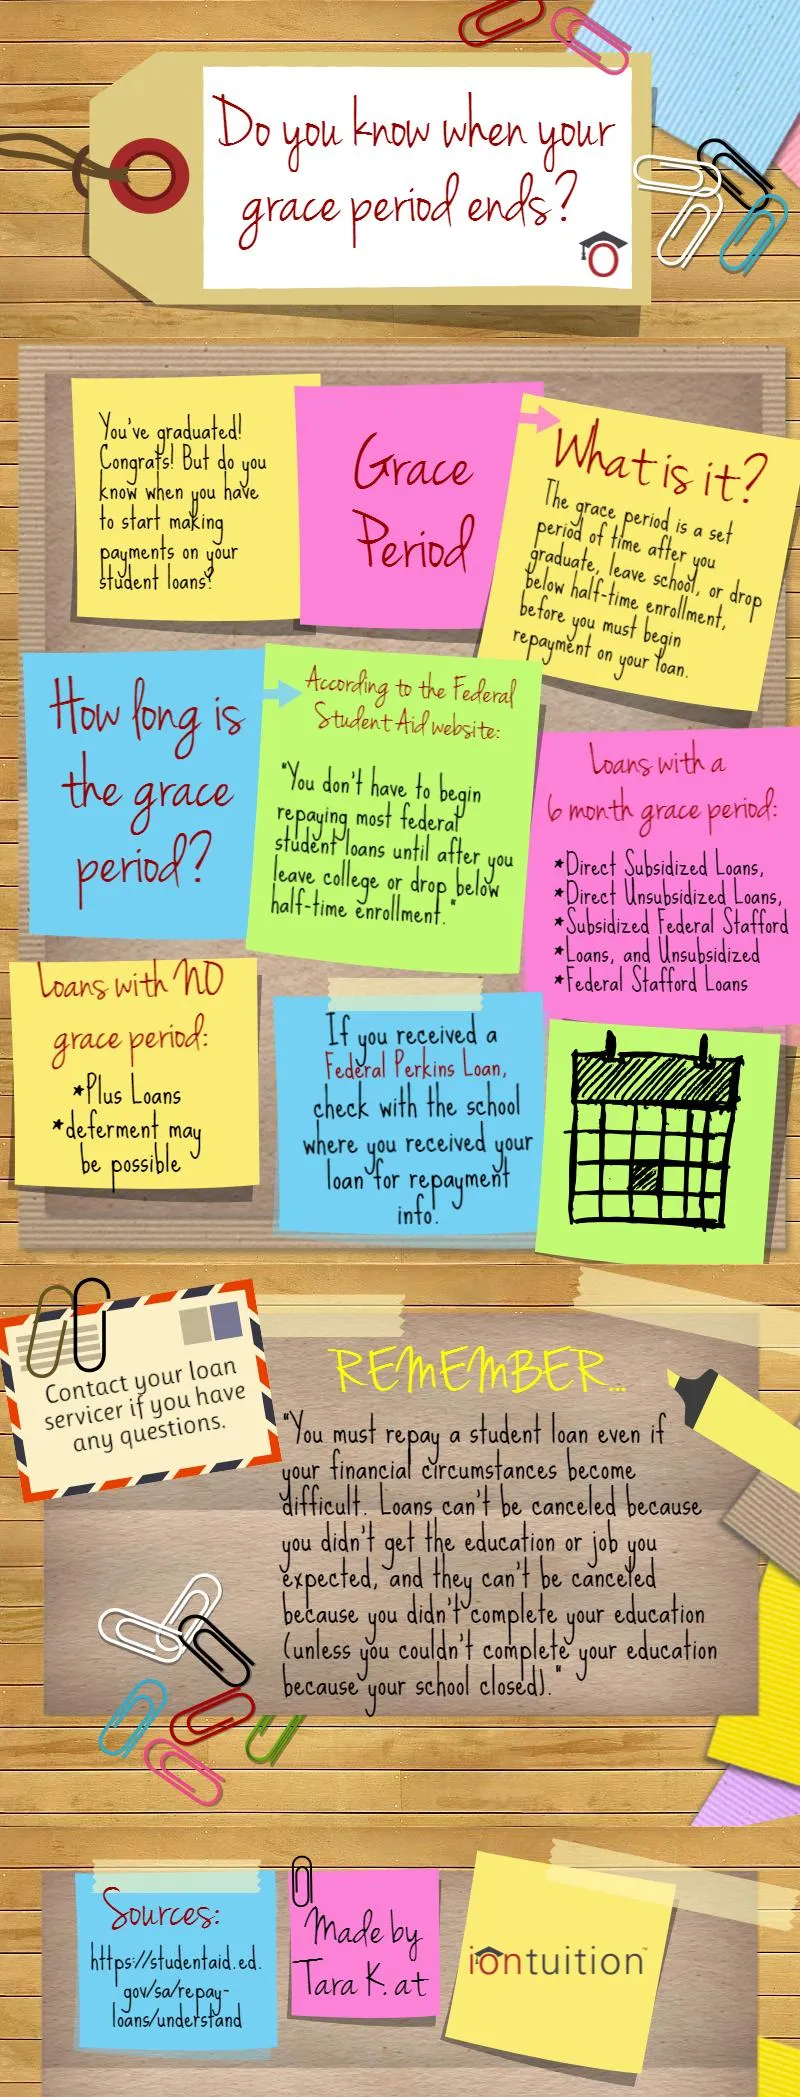 Do you know when your
grace period ends?
You've graduated!
Congrats! But do you
know when you have
to start making
payments on your
student loans?
Grace
Period
What is it?
The grace period is a set
period of time after you
graduate, leave school, or drop
below half-time enrollment,
before you must begin
repayment on your loan.
How long is
the grace
period?
According to the Federal
Student Aid website:
"You don't have to begin
repaying most federal
student loans until after you
leave college or drop below
half-time enrollment."
Loans with a
6 month grace period:
*Direct Subsidized Loans,
*Direct Unsubsidized Loans,
*Subsidized Federal Stafford
*Loans, and Unsubsidized
*Federal Stafford Loans
Loans with NO
grace period:
*Plus Loans
*deferment may
be possible
If you received a
Federal Perkins Loan,
check with the school
where you received your
loan for repayment
info.
Contact your loan
servicer if you have
any questions.
REMEMBER...
"You must repay a student loan even if
your financial circumstances become
difficult. Loans can't be canceled because
you didn't get the education or job you
expected, and they can't be canceled
because you didn't complete your education
(unless you couldn't complete your education
because your school closed)."
Sources:
https://studentaid.ed.
gov/sa/repay-
loans/understand
Made by
Tara K. at
iontuition™